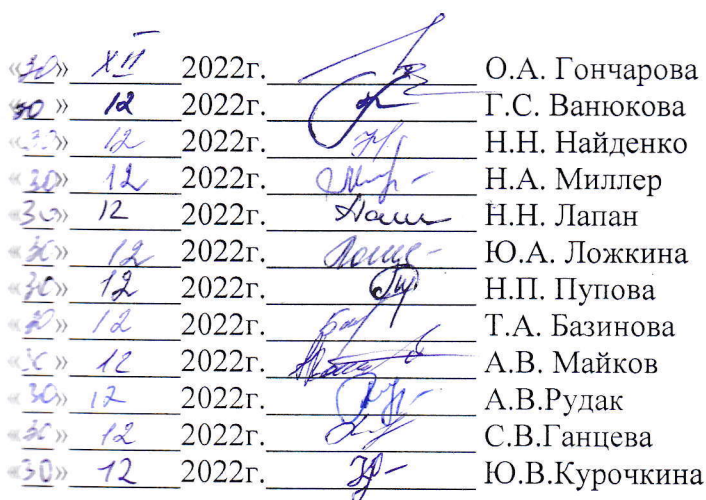 «30» XII 2022г. О.А. Гончарова
«30» 12 2022г. Г.С. Ванюкова
«30» 12 2022г. Н.Н. Найденко
«30» 12 2022г. Н.А. Миллер
«30» 12 2022г. Н.Н. Лапан
«30» 12 2022г. Ю.А. Ложкина
«30» 12 2022г. Н.П. Пупова
«30» 12 2022г. Т.А. Базинова
«30» 12 2022г. А.В. Майков
«30» 12 2022г. А.В.Рудак
«30» 12 2022г. С.В.Ганцева
«30» 12 2022г. Ю.В.Курочкина